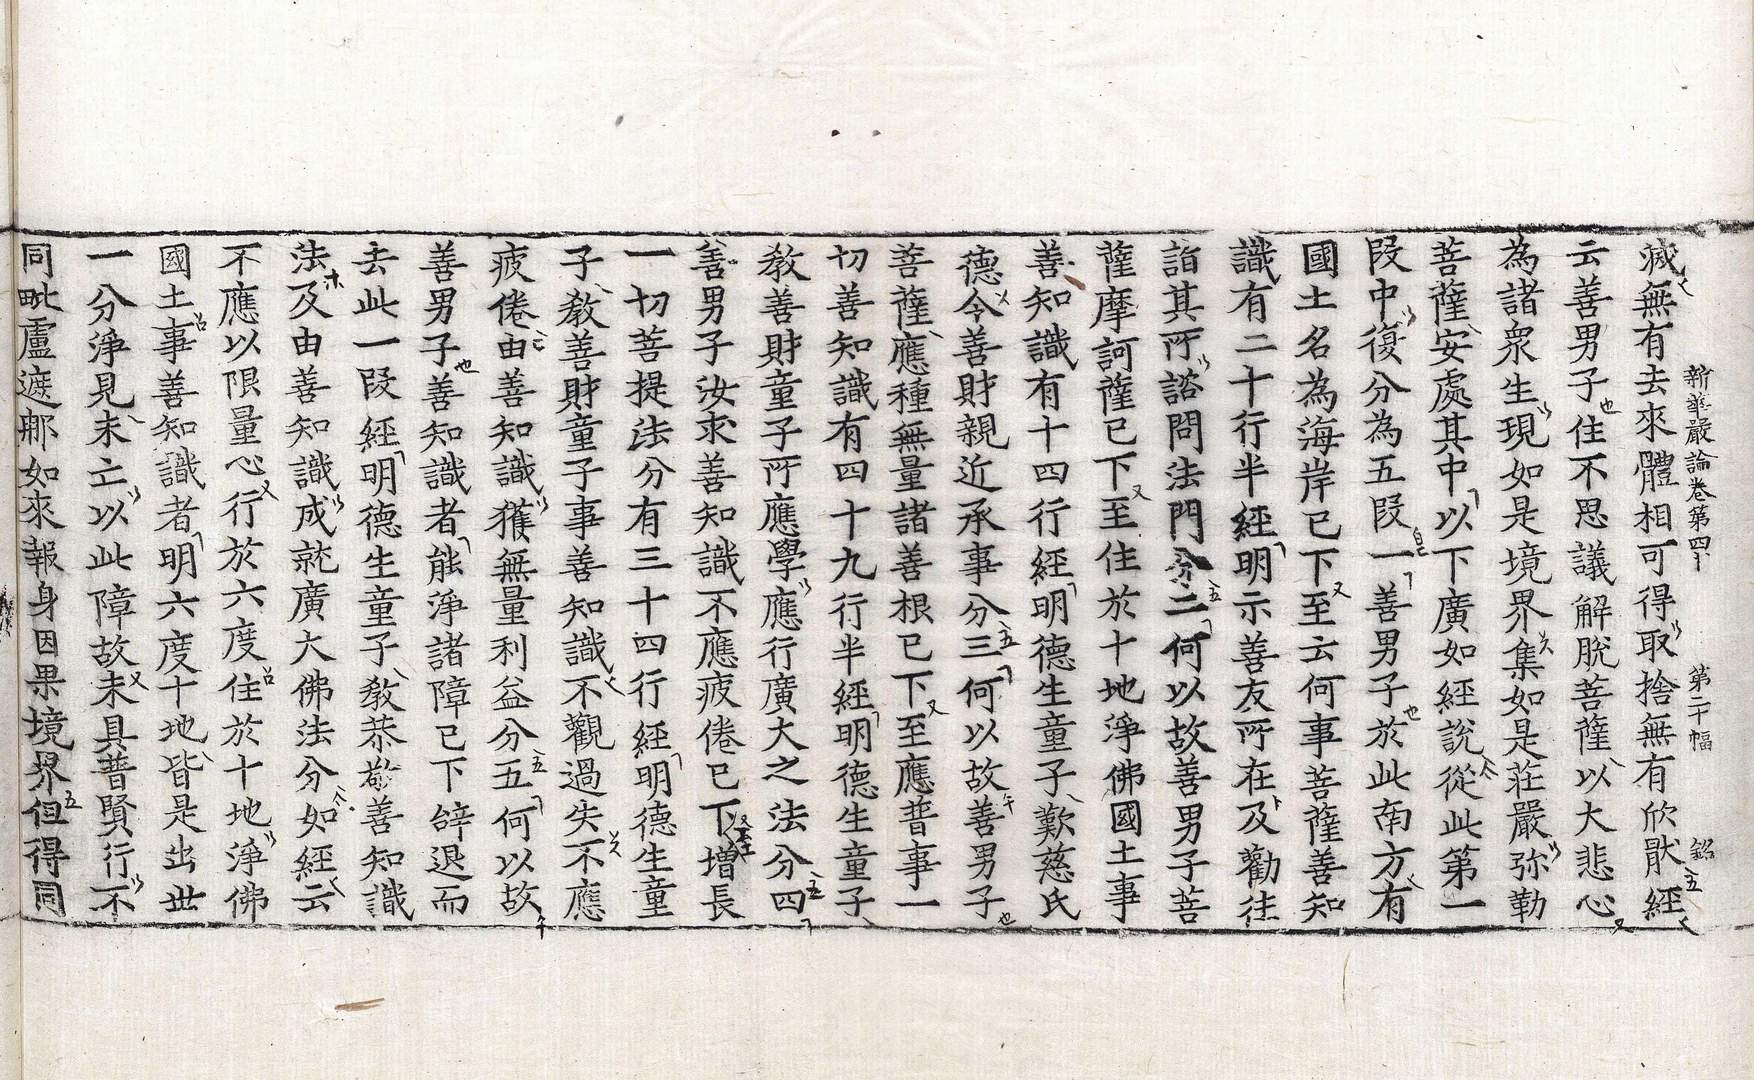 新華嚴論卷第四十 第二十幅 銘
滅無有去來體相可得取捨無有欣猒經
云善男子住不思議解脫菩薩以大悲心
為諸衆生現如是境界集如是莊嚴弥勒
菩薩安處其中以下廣如經說從此第一
段中復分為五段一善男子於此南方有
國土名為海岸已下至云何事菩薩善知
識有二十行半經明示善友所在及勸往
詣其所諮問法門分二何以故善男子菩
薩摩訶薩已下至住於十地淨佛國土事
善知識有十四行經明德生童子歎慈氏
德令善財親近承事分三何以故善男子
菩薩應種無量諸善根已下至應普事一
切善知識有四十九行半經明德生童子
教善財童子所應學應行廣大之法分四
善男子汝求善知識不應疲倦已下增長
一切菩提法分有三十四行經明德生童
子教善財童子事善知識不觀過失不應
疲倦由善知識獲無量利益分五何以故
善男子善知識者能淨諸障已下辝退而
去此一段經明德生童子教恭敬善知識
法及由善知識成就廣大佛法分如經云
不應以限量心行於六度住於十地淨佛
國土事善知識者明六度十地皆是出世
一分淨見未亡以此障故未具普賢行不
同毗盧遮那如來報身因果境界但得同